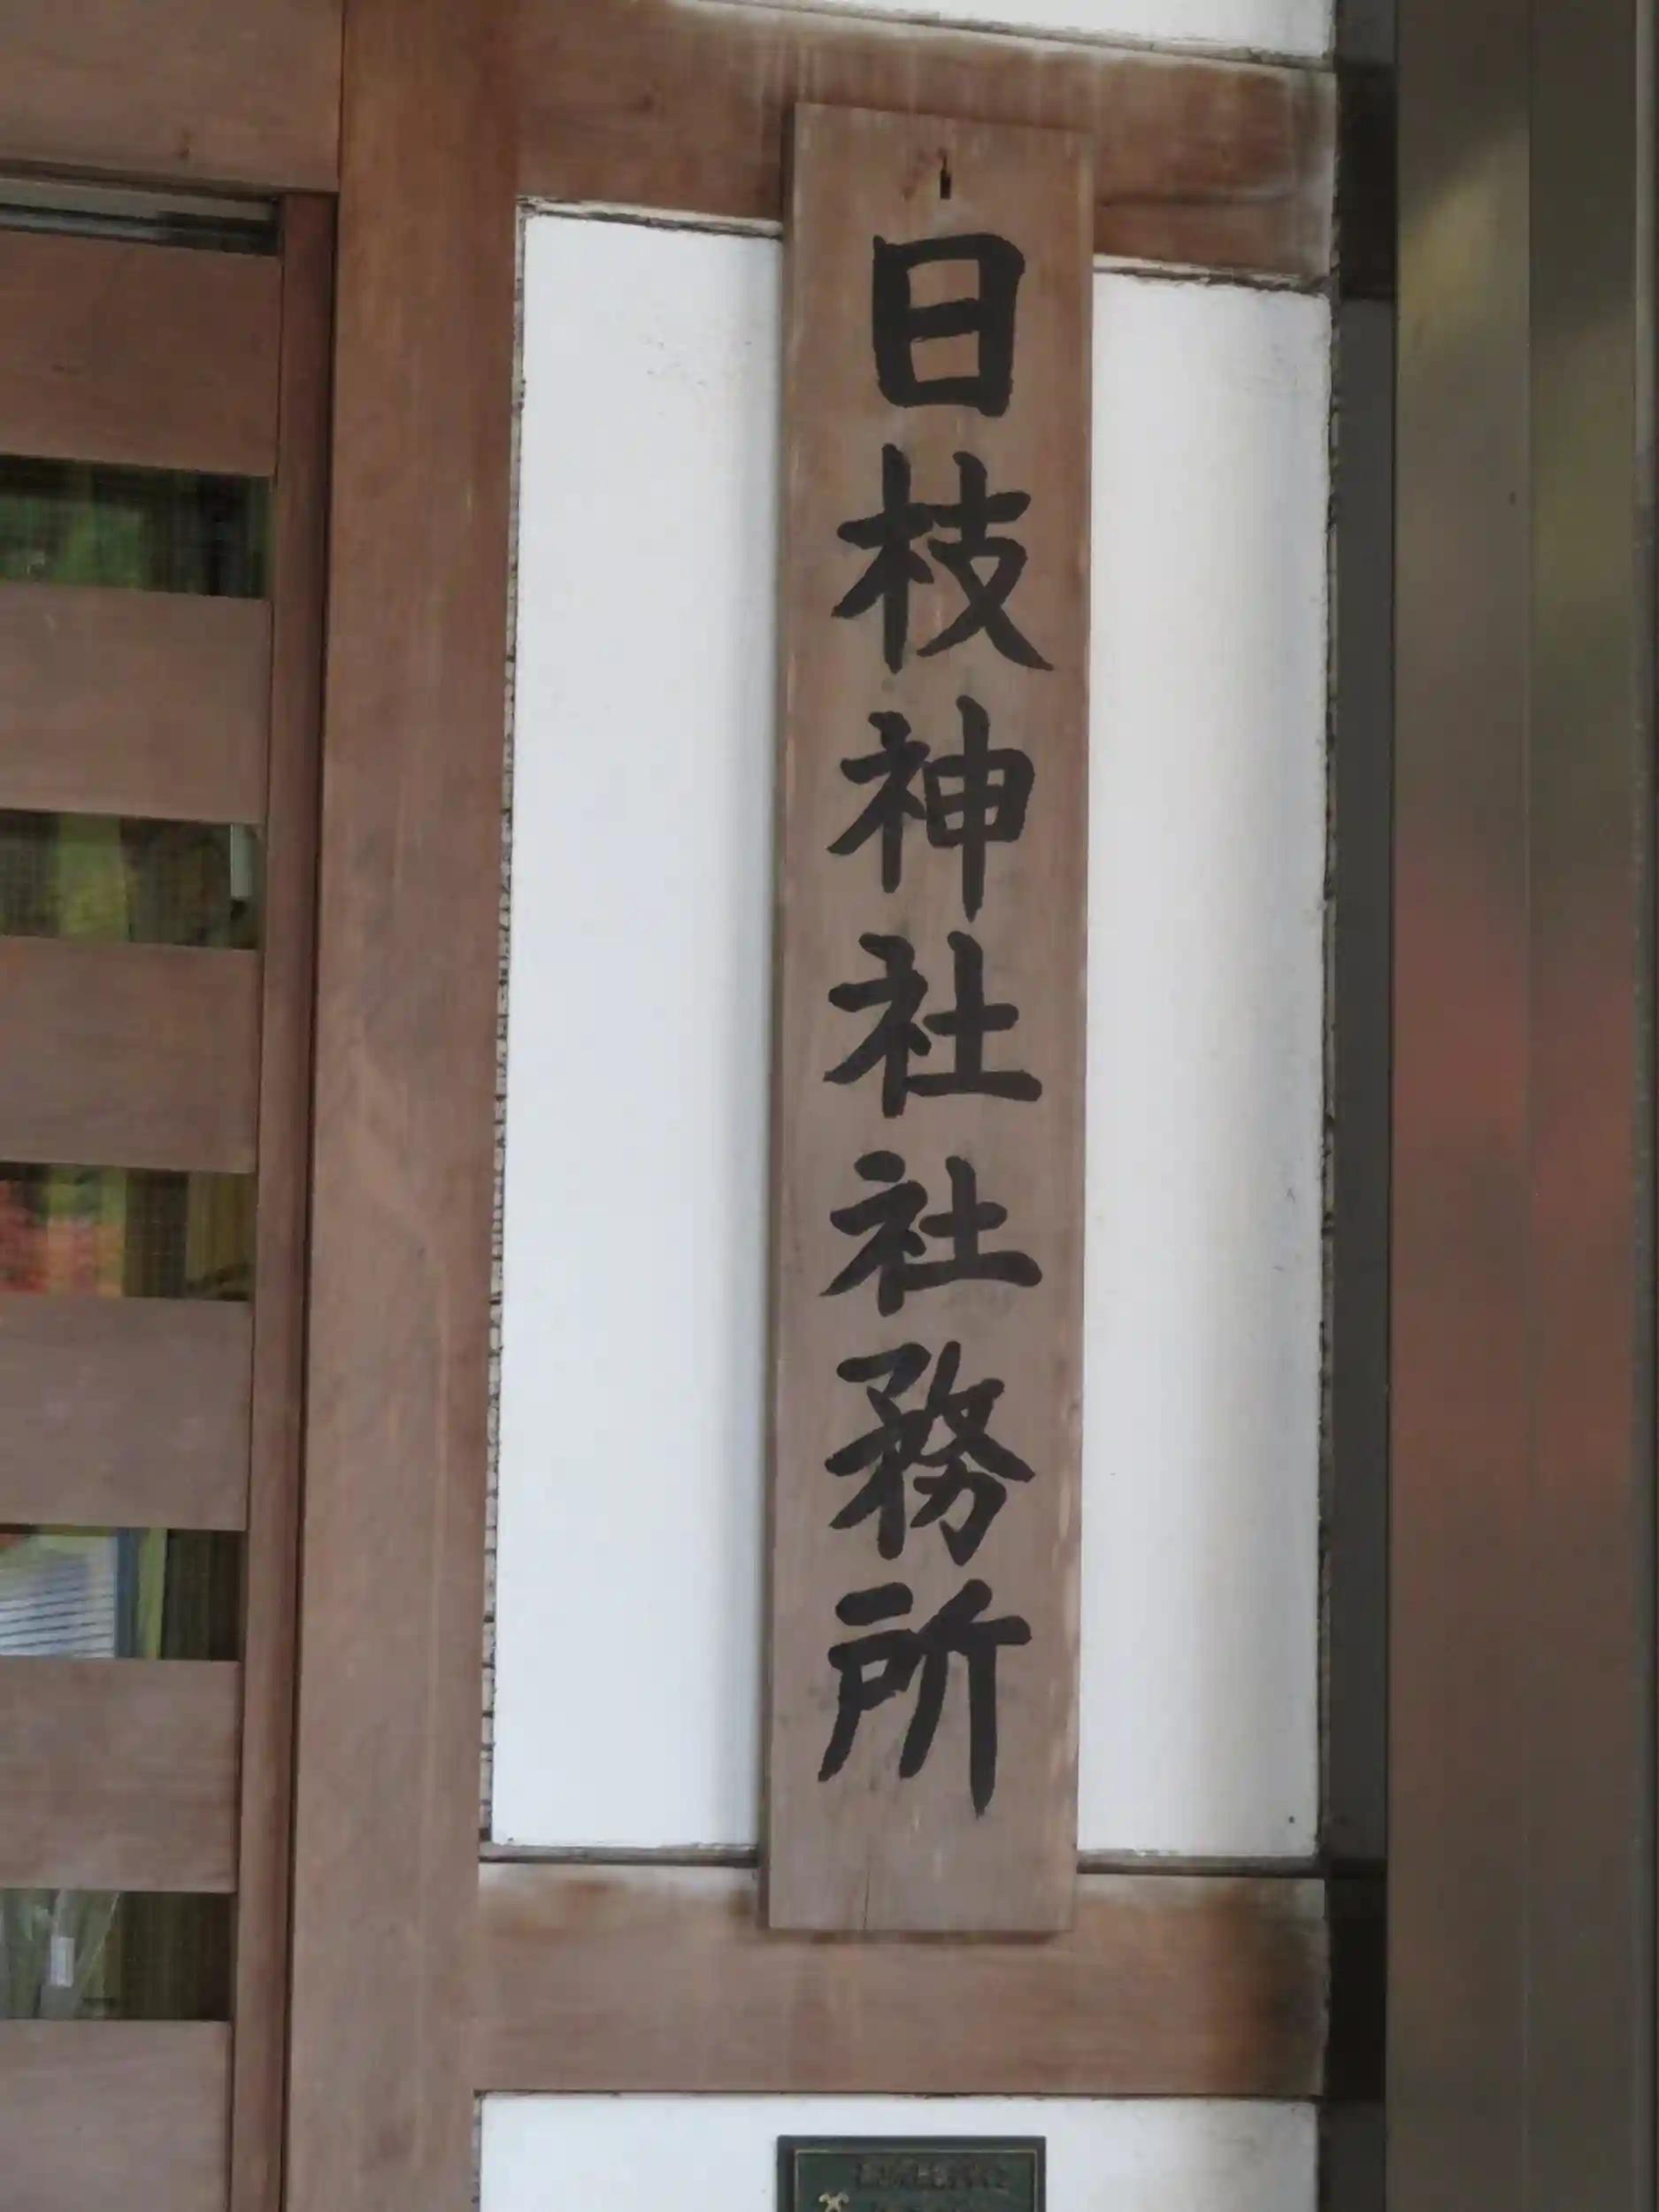 日枝神社社務所